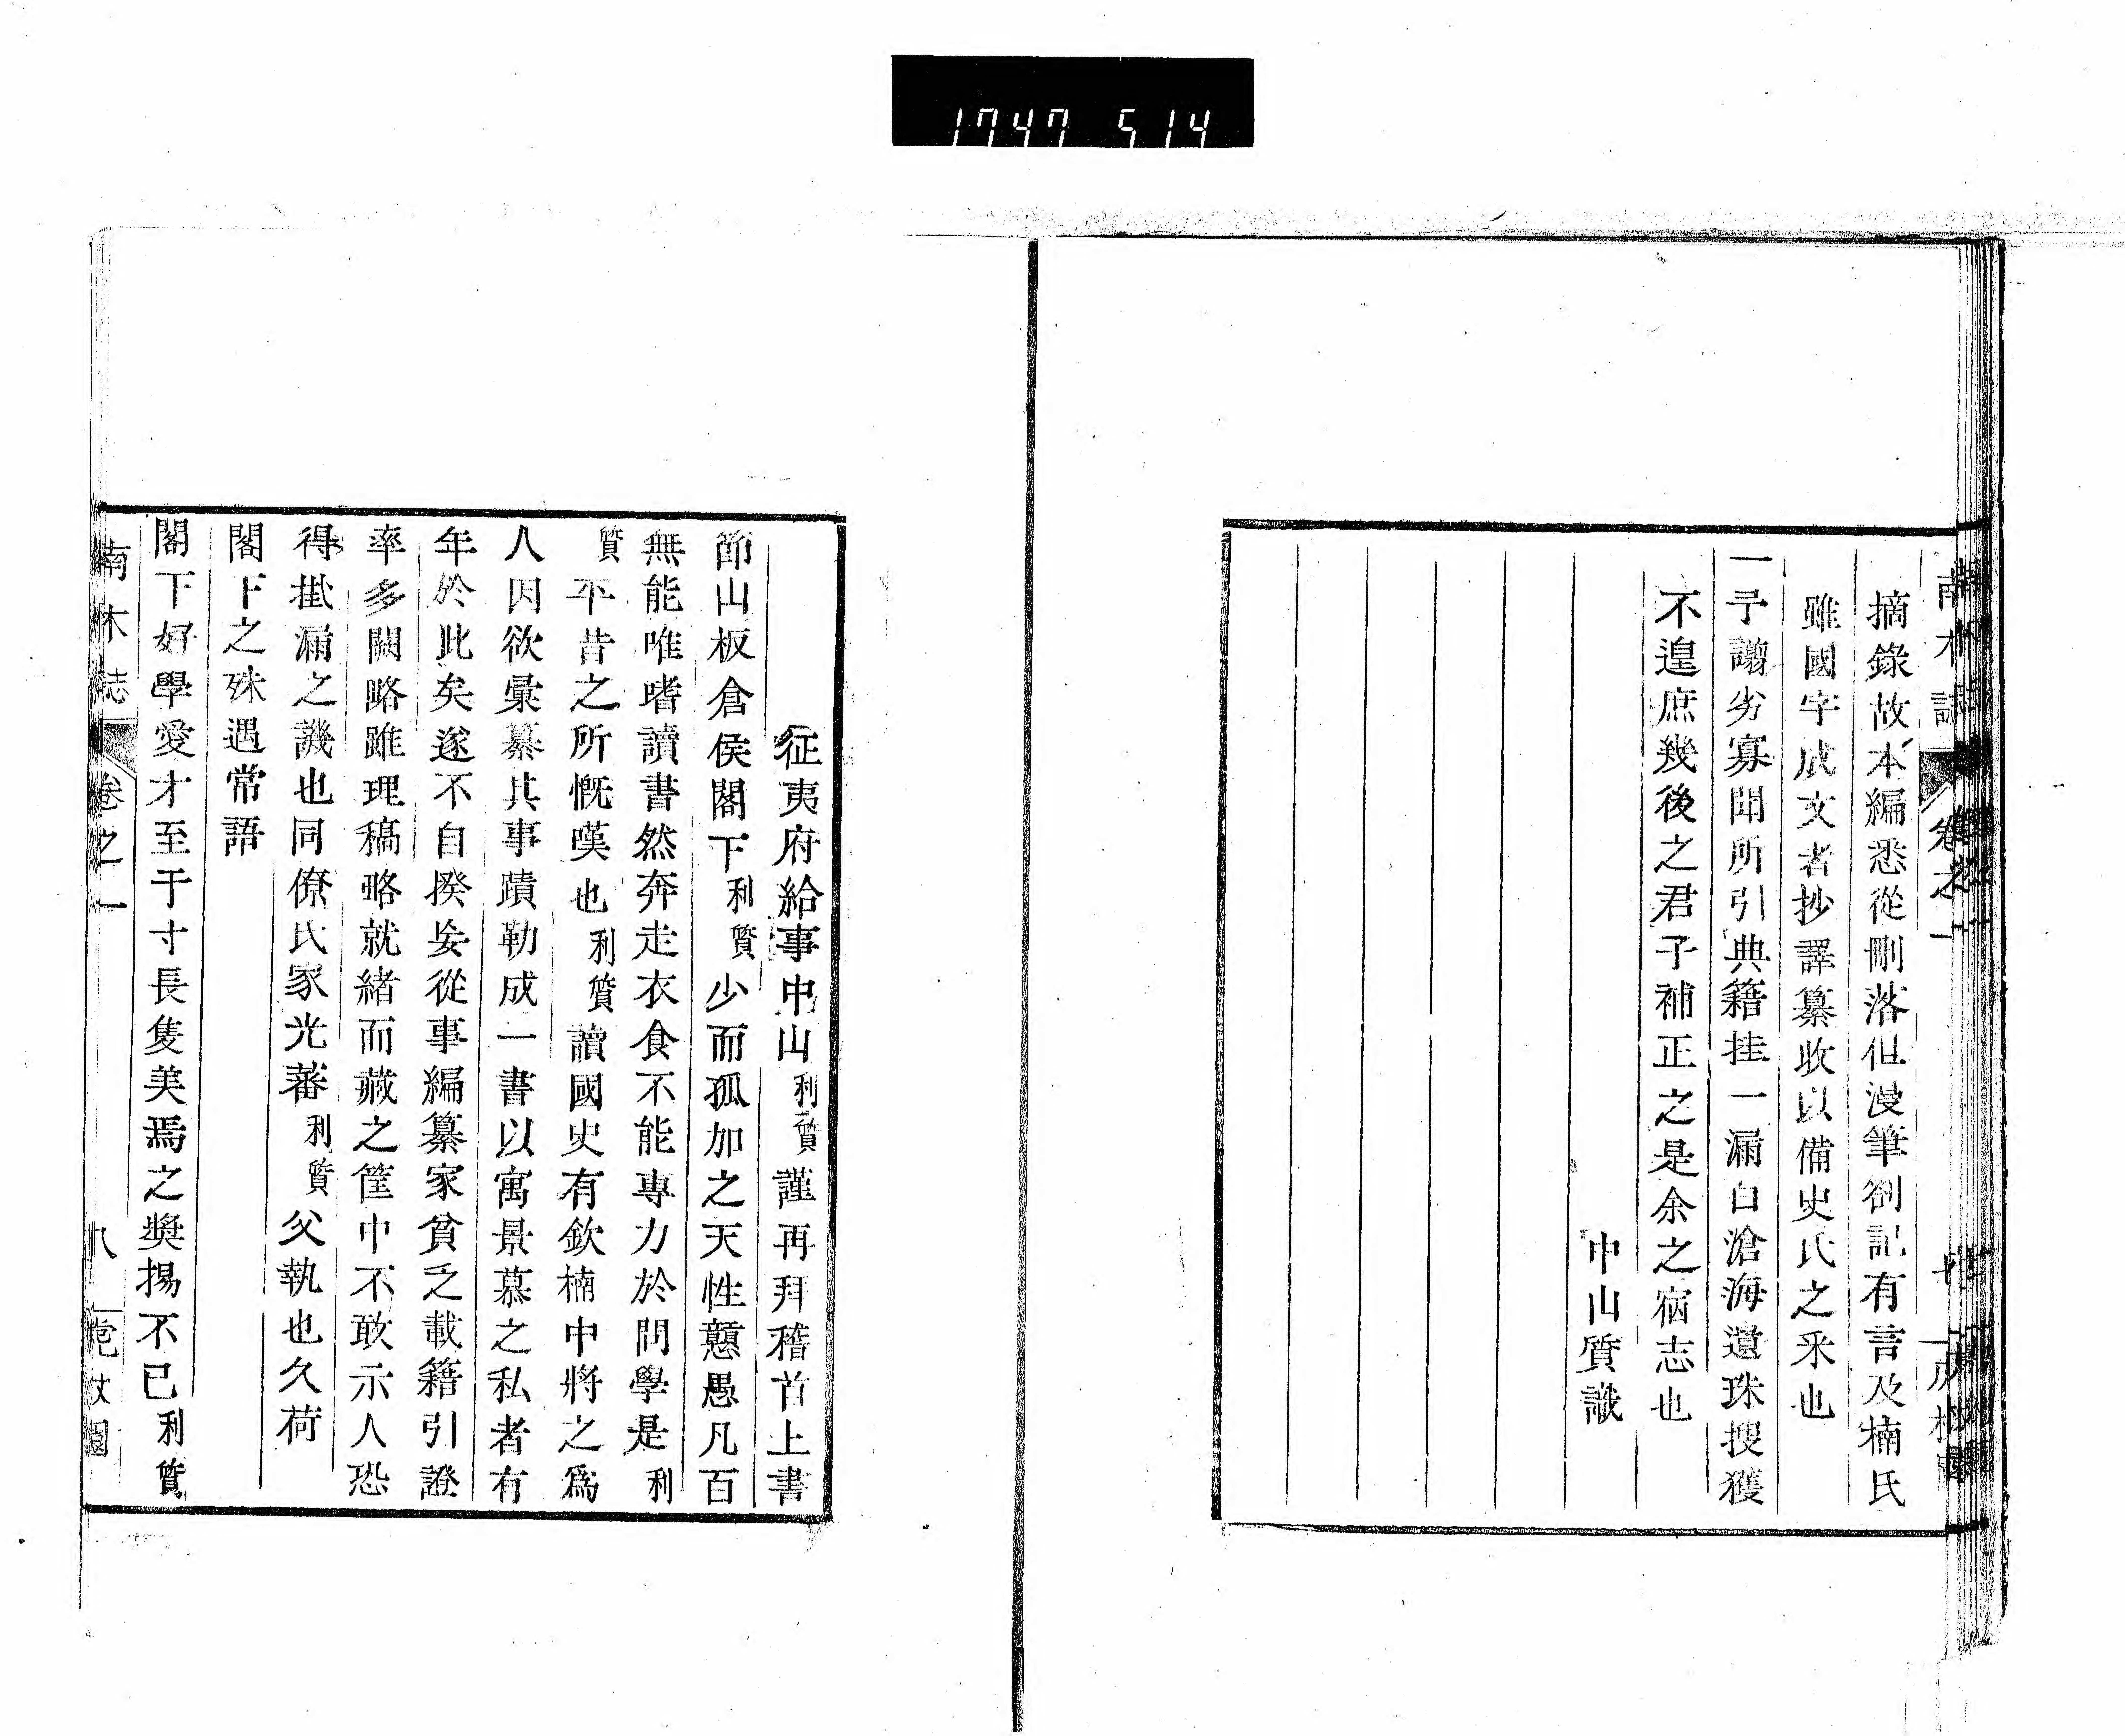 1747 514
摘錄故本編悉從刪落但漫筆劄記有言及楠氏
雖國字成文者抄譯纂收以備史氏之采也
一予謭劣寡聞所引典籍挂一漏白滄海遺珠搜獲
不遑庶幾後之君子補正之是余之宿志也
中山質識
征夷府給事中山利質謹再拜稽首上書
節山板倉侯閣下利質少而孤加之天性戇愚凡百
無能唯嗜讀書然奔走衣食不能專力於問學是利
質平昔之所慨嘆也利質讀國史有欽楠中將之爲
人因欲彙纂其事蹟勒成一書以寓景慕之私者有
年於此矣遂不自揆妄從事編纂家貧乏載籍引證
率多闕略雖理稿略就緒而藏之筐中不敢示人恐
得掛漏之譏也同僚氏家光蕃利質父執也久荷
閣下之殊遇常語
閣下好學愛才至于寸長隻美焉之奬揚不已利質
南木誌 卷之一 八